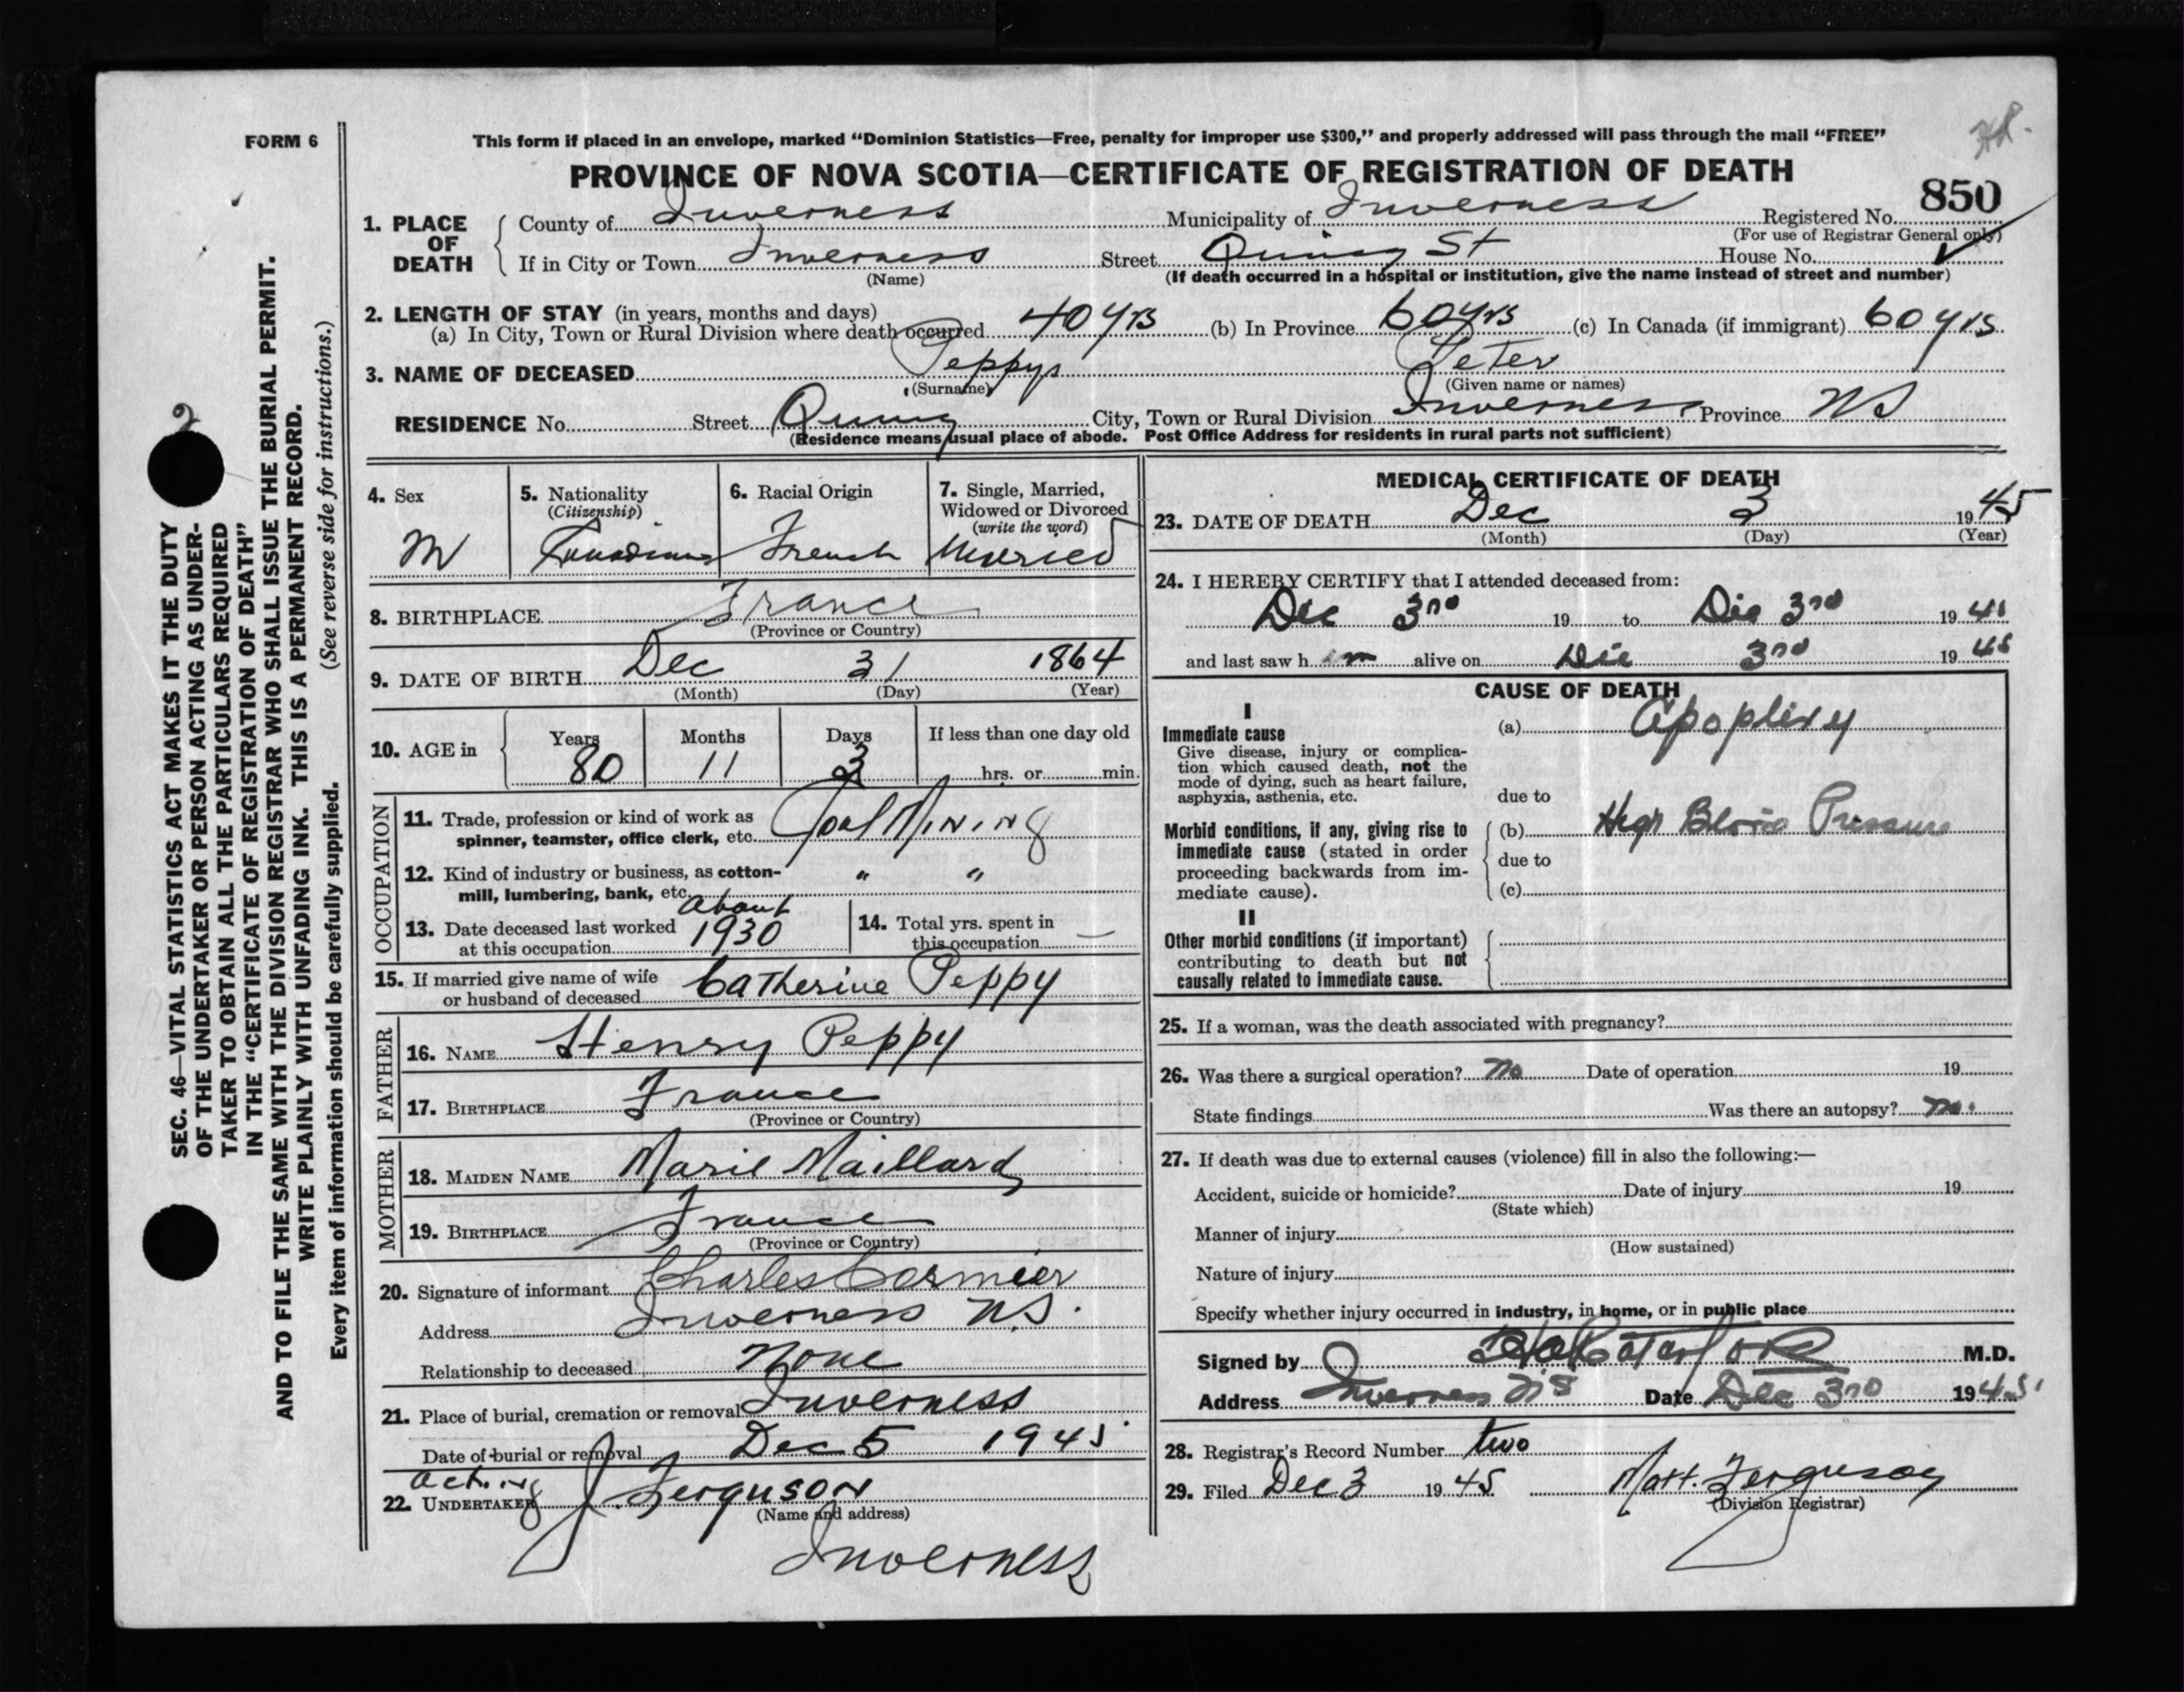 FORM 6
This form if placed in an envelope, marked “Dominion Statistics—Free, penalty for improper use $300,” and properly addressed will pass through the mail “FREE”
PROVINCE OF NOVA SCOTIA—CERTIFICATE OF REGISTRATION OF DEATH
850
1. PLACE OF DEATH { County of Inverness Municipality of Inverness Registered No.
(For use of Registrar General only)
If in City or Town Inverness Street St House No.
(Name) (If death occurred in a hospital or institution, give the name instead of street and number)
2. LENGTH OF STAY (in years, months and days)
(a) In City, Town or Rural Division where death occurred 40 yrs (b) In Province 60 yrs (c) In Canada (if immigrant) 60 yrs
3. NAME OF DECEASED Peppys Peter
(Surname) (Given name or names)
RESIDENCE No. Street City, Town or Rural Division Inverness Province NS
(Residence means usual place of abode. Post Office Address for residents in rural parts not sufficient)
4. Sex M
5. Nationality (Citizenship) Canadian
6. Racial Origin French
7. Single, Married, Widowed or Divorced (write the word) Married
8. BIRTHPLACE France
(Province or Country)
9. DATE OF BIRTH Dec 31 1864
(Month) (Day) (Year)
10. AGE in { Years 80 Months 11 Days 3 If less than one day old hrs. or min.
OCCUPATION
11. Trade, profession or kind of work as
spinner, teamster, office clerk, etc. Coal Mining
12. Kind of industry or business, as cotton-
mill, lumbering, bank, etc. " "
13. Date deceased last worked
at this occupation About 1930
14. Total yrs. spent in
this occupation —
15. If married give name of wife
or husband of deceased Catherine Peppy
FATHER
16. NAME Henry Peppy
17. BIRTHPLACE France
(Province or Country)
MOTHER
18. MAIDEN NAME Marie Maillard
19. BIRTHPLACE France
(Province or Country)
20. Signature of informant Charles Cormier
Address Inverness N.S.
Relationship to deceased None
21. Place of burial, cremation or removal Inverness
Date of burial or removal Dec 5 1945
acting
22. UNDERTAKER J. Ferguson
(Name and address)
Inverness
MEDICAL CERTIFICATE OF DEATH
23. DATE OF DEATH Dec 3 1945
(Month) (Day) (Year)
24. I HEREBY CERTIFY that I attended deceased from:
Dec 3rd 19 to Dec 3rd 1945
and last saw him alive on Dec 3rd 1945
CAUSE OF DEATH
I
Immediate cause
Give disease, injury or complica-
tion which caused death, not the
mode of dying, such as heart failure,
asphyxia, asthenia, etc.
(a) Apoplexy
due to
Morbid conditions, if any, giving rise to
immediate cause (stated in order
proceeding backwards from im-
mediate cause).
(b) High Blood Pressure
due to
(c)
II
Other morbid conditions (if important)
contributing to death but not
causally related to immediate cause.
25. If a woman, was the death associated with pregnancy?
26. Was there a surgical operation? no Date of operation 19
State findings Was there an autopsy? no.
27. If death was due to external causes (violence) fill in also the following:—
Accident, suicide or homicide? Date of injury 19
(State which)
Manner of injury
(How sustained)
Nature of injury
Specify whether injury occurred in industry, in home, or in public place
Signed by M.D.
Address Inverness NS Date Dec 3rd 1945
28. Registrar's Record Number two
29. Filed Dec 3 1945 Matt. Ferguson
(Division Registrar)
SEC. 46—VITAL STATISTICS ACT MAKES IT THE DUTY
OF THE UNDERTAKER OR PERSON ACTING AS UNDER-
TAKER TO OBTAIN ALL THE PARTICULARS REQUIRED
IN THE “CERTIFICATE OF REGISTRATION OF DEATH”
AND TO FILE THE SAME WITH THE DIVISION REGISTRAR WHO SHALL ISSUE THE BURIAL PERMIT.
WRITE PLAINLY WITH UNFADING INK. THIS IS A PERMANENT RECORD.
Every item of information should be carefully supplied. (See reverse side for instructions.)
2